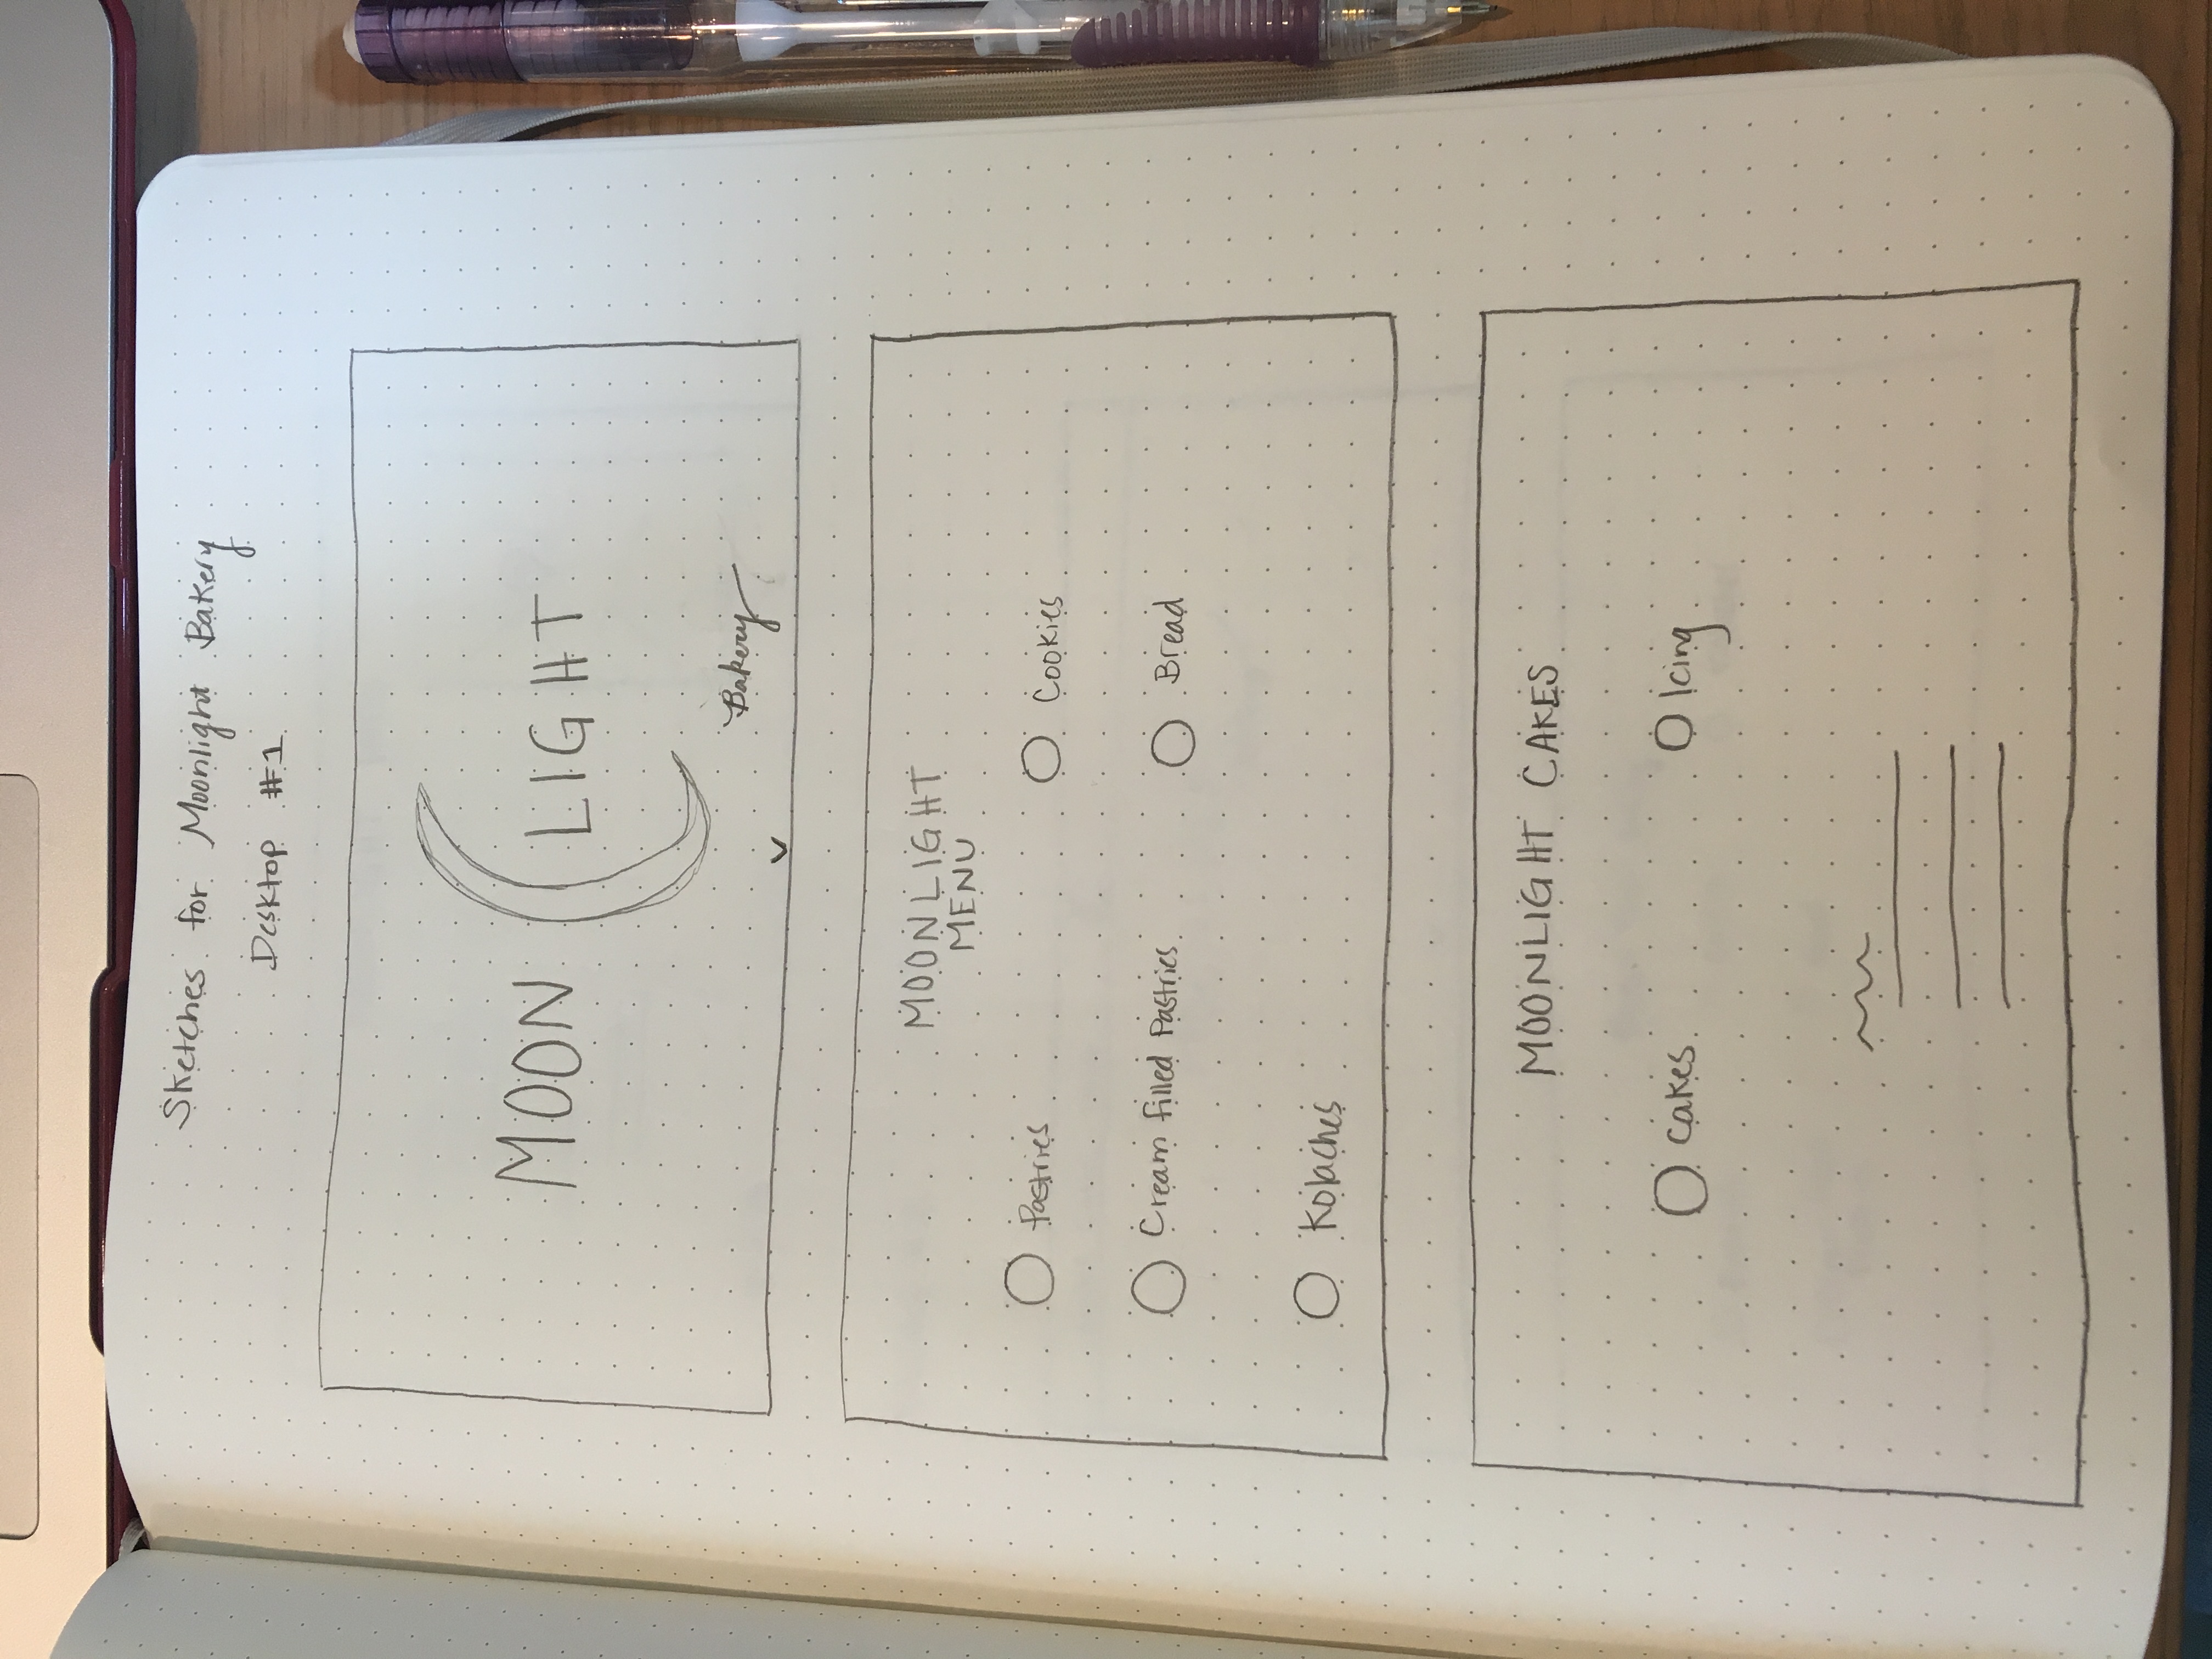 Sketches for Moonlight Bakery
Desktop #1
MOON LIGHT
Bakery
MOONLIGHT
MENU
Pastries
Cookies
Cream filled Pastries
Bread
Kolaches
MOONLIGHT CAKES
Cakes
Icing